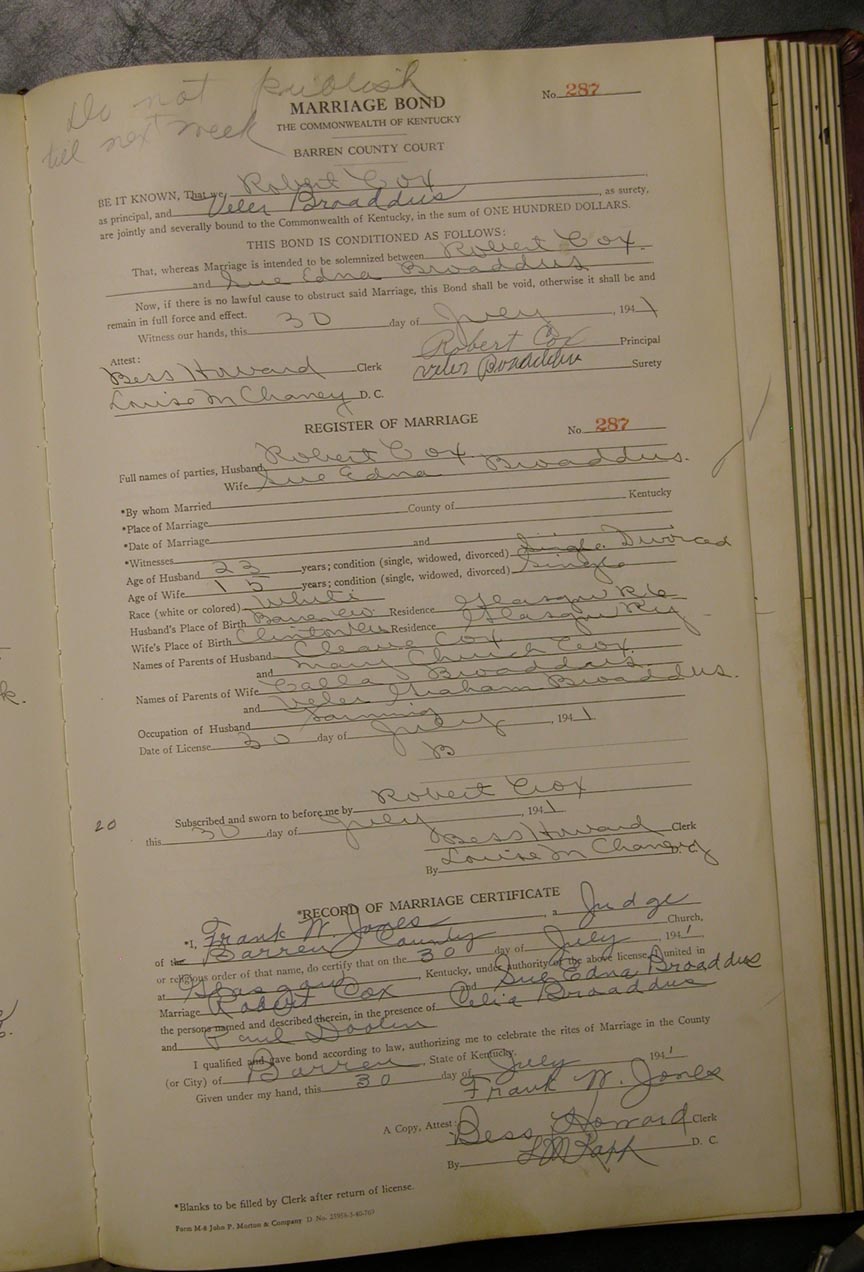 Do not publish
till next week
MARRIAGE BOND
No. 287
THE COMMONWEALTH OF KENTUCKY
BARREN COUNTY COURT
BE IT KNOWN, That we Robert Cox
as principal, and Veler Broaddus, as surety,
are jointly and severally bound to the Commonwealth of Kentucky, in the sum of ONE HUNDRED DOLLARS.
THIS BOND IS CONDITIONED AS FOLLOWS:
That, whereas Marriage is intended to be solemnized between Robert Cox
and Sue Edna Broaddus
Now, if there is no lawful cause to obstruct said Marriage, this Bond shall be void, otherwise it shall be and
remain in full force and effect.
Witness our hands, this 30 day of July, 1941
Attest:
Robert Cox Principal
Bess Howard Clerk
Veler Broaddus Surety
Louise McChaney D. C.
REGISTER OF MARRIAGE
No. 287
Full names of parties, Husband Robert Cox
Wife Sue Edna Broaddus.
*By whom Married
*Place of Marriage County of Kentucky
*Date of Marriage
*Witnesses and
Age of Husband 23 years; condition (single, widowed, divorced) Single Divorced
Age of Wife 15 years; condition (single, widowed, divorced) Single
Race (white or colored) White
Husband's Place of Birth Barren Co Residence Glasgow
Wife's Place of Birth Clinton Residence Glasgow Ky
Names of Parents of Husband Cleave Cox
and Mary Church Cox.
Names of Parents of Wife Broaddus.
and Veler Graham Broaddus.
Occupation of Husband Farming
Date of License 30 day of July, 1941
B
Subscribed and sworn to before me by Robert Cox
20
this 30 day of July, 1941
Bess Howard Clerk
By Louise McChaney D. C.
*RECORD OF MARRIAGE CERTIFICATE
*I, Frank W. Jones, a Judge
of the Barren County Church,
or religious order of that name, do certify that on the 30 day of July, 1941
at Glasgow, Kentucky, under authority of the above license, I united in
Marriage Robert Cox and Sue Edna Broaddus
the persons named and described therein, in the presence of Celia Broaddus
and Paul Doolin
I qualified and gave bond according to law, authorizing me to celebrate the rites of Marriage in the County
(or City) of Barren, State of Kentucky.
Given under my hand, this 30 day of July 1941
Frank W. Jones
A Copy, Attest: Bess Howard Clerk
By D. C.
*Blanks to be filled by Clerk after return of license.
Form M-8 John P. Morton & Company